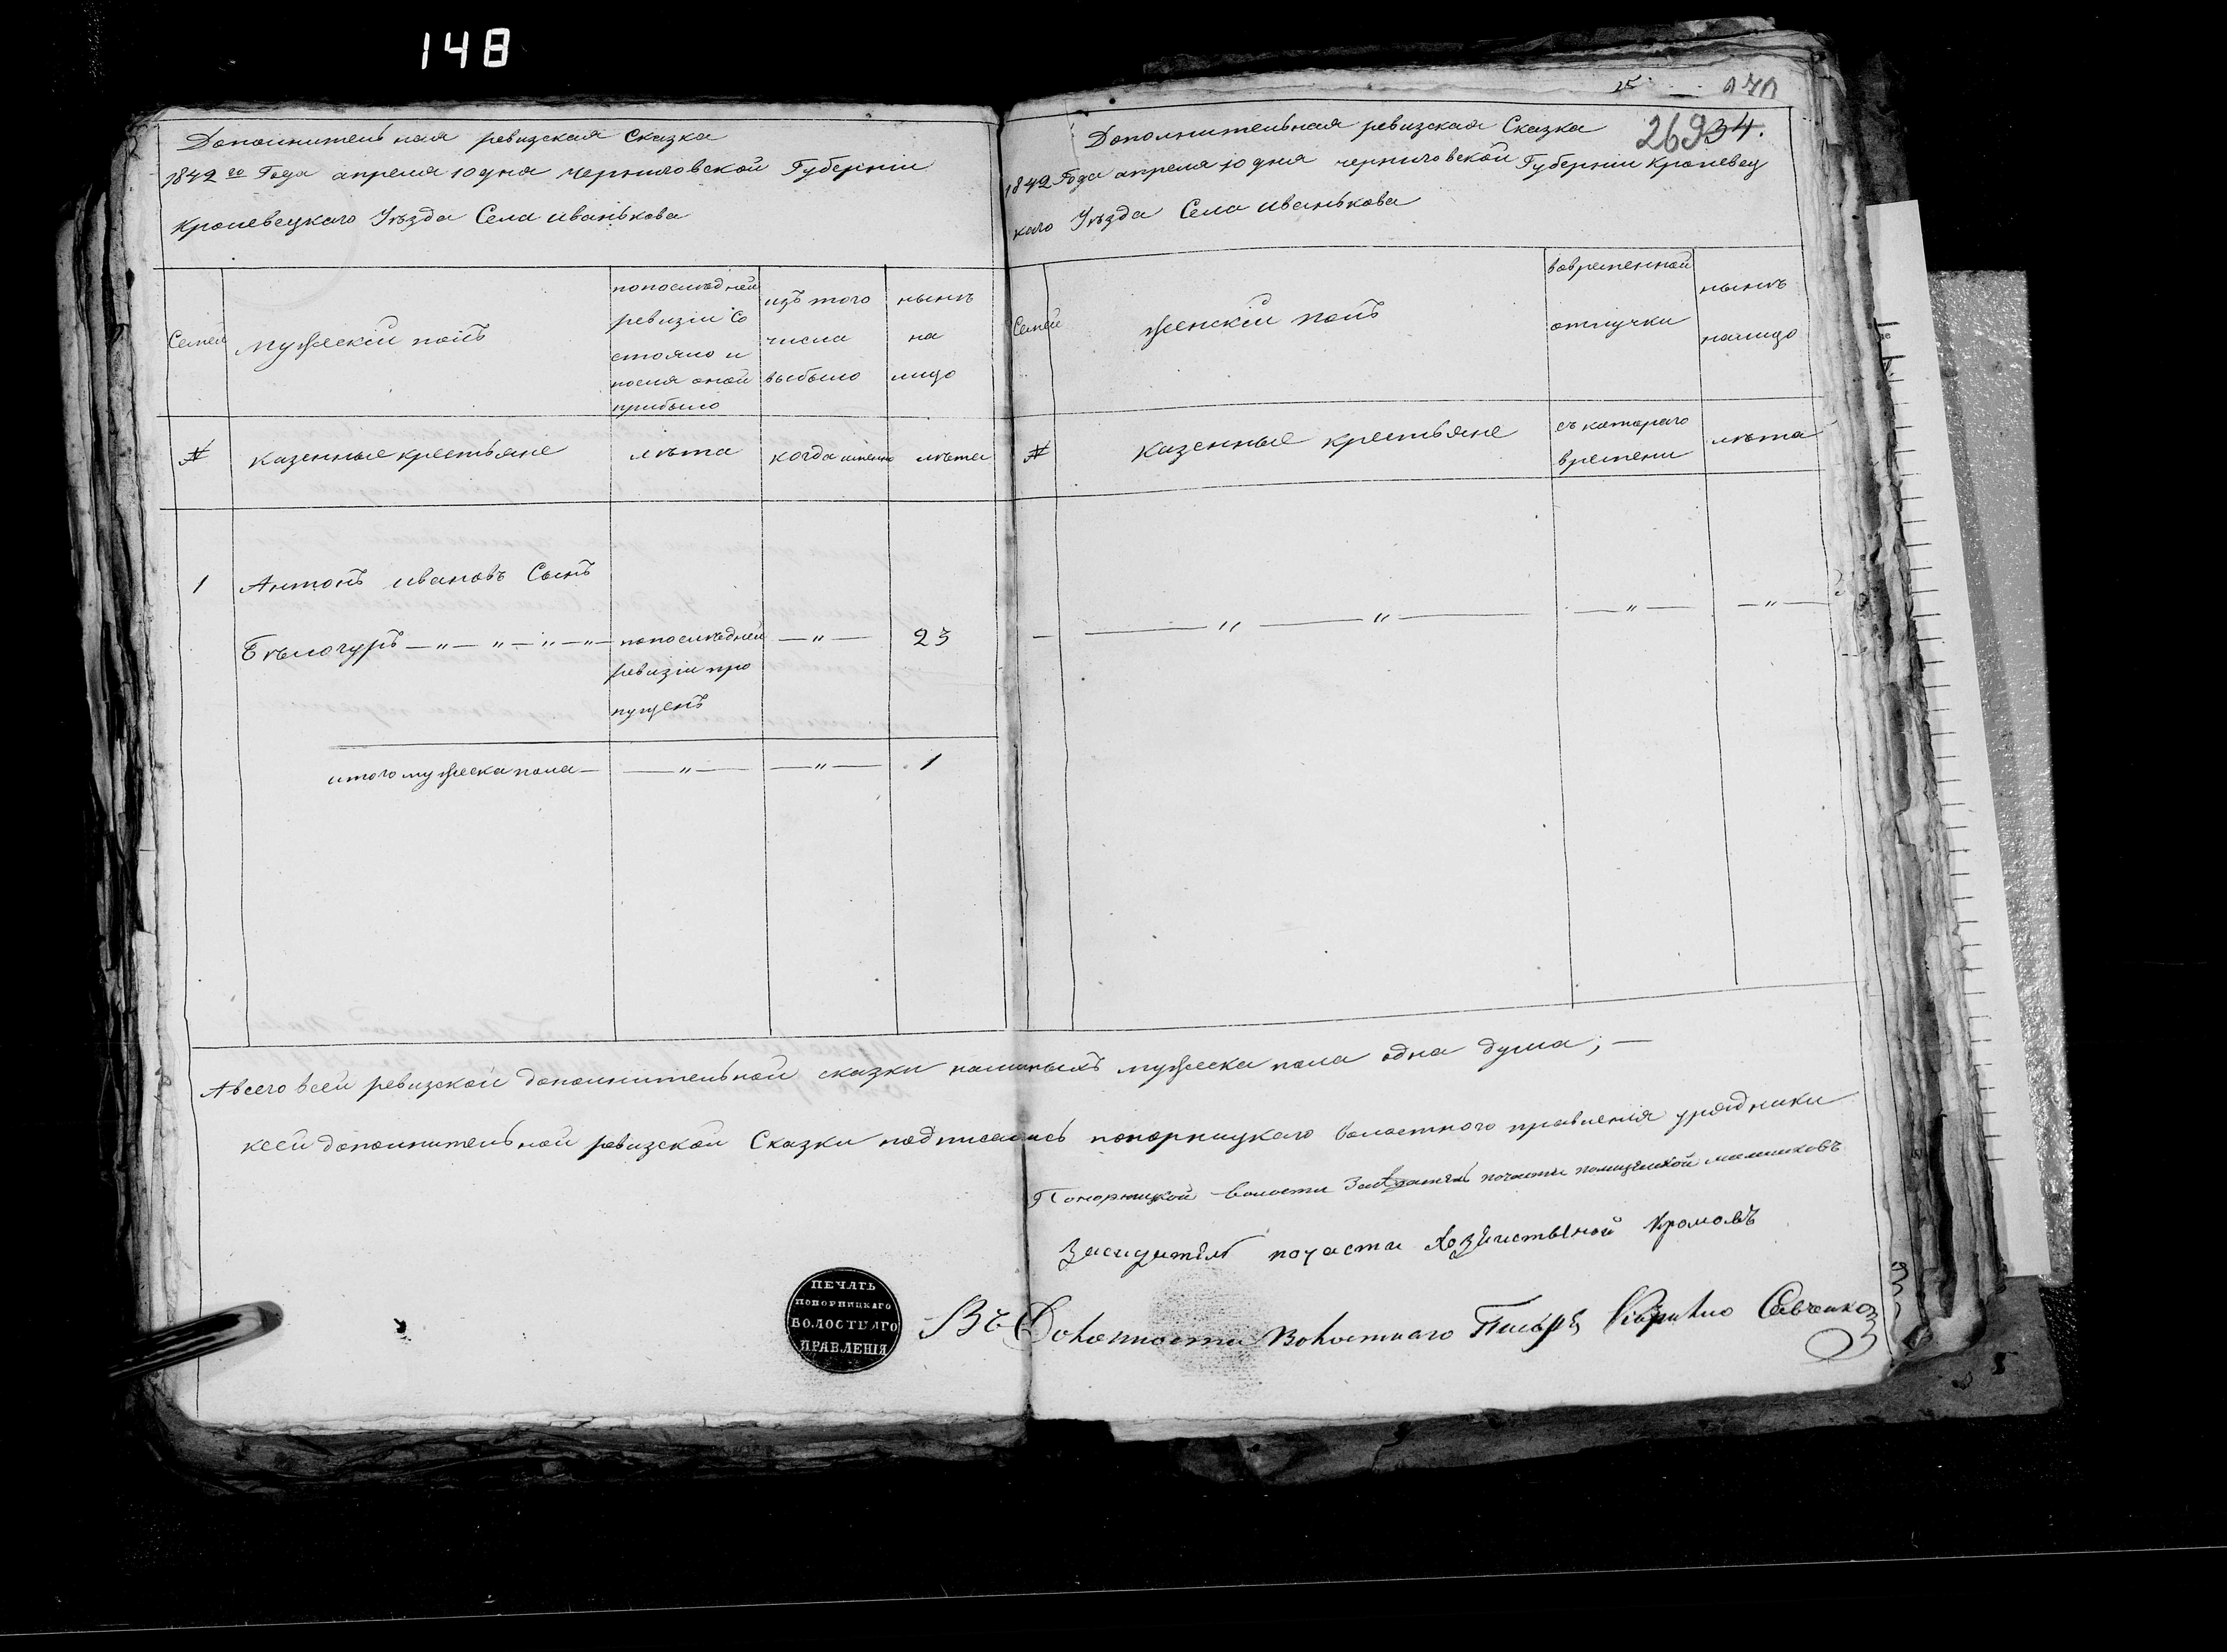 148
Дополнительная ревизская Сказка
1842го Года апреля 10 дня Черниговской Губерніи
Кролевецкаго Уѣзда Села Иванькова
Семей
мужескій полъ
по послѣдней ревизіи состояло и посля оной прибыло
изъ того числа выбыло
нынѣ на лицо
№
казенные крестьяне
лѣта
когда именно
лѣта
1
Антонъ Ивановъ Сынъ
Бѣлогуръ — „ — „ — „ — „ —
по послѣдней
— „ —
23
ревизіи про
пущенъ
итого мужеска пола —
— „ —
— „ —
1
26934.
Дополнительная ревизская Сказка
1842 Года апреля 10 дня черниговской Губерніи Кролевец
каго Уѣзда Села Иванькова
Семей
женскій полъ
во временной отлучки
нынѣ налицо
№
Казенные крестьяне
съ котораго времени
лѣта
— — „ — „ — — „ — — „ —
А всего в сей ревизской дополнительной сказки наличныхъ мужеска пола одна душа; —
к сей дополнительной ревизской Сказки подписались понорницкаго волостного правленія урядники
Понорницкой волости Заседатель по части полицейской
Заседатель по части Хозяиственой Кромовъ
ПЕЧАТЬ
ПОНОРНИЦКАГО
ВОЛОСТНАГО
ПРАВЛЕНІЯ
Въ Должности Волостнаго Писаря Савченко